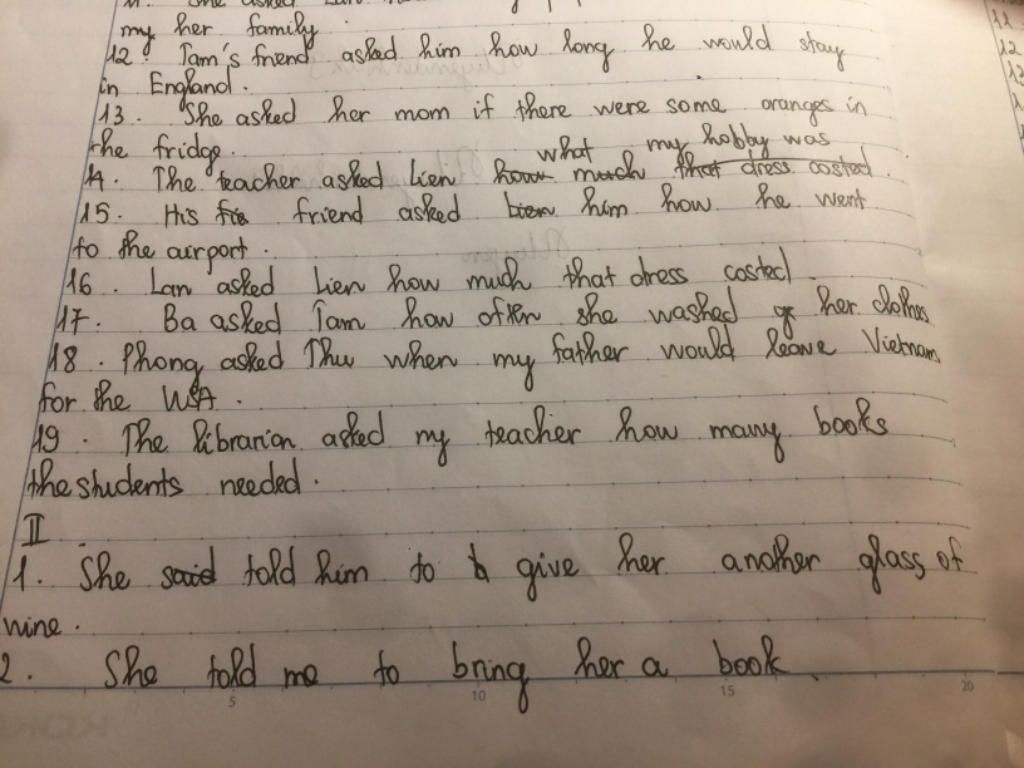 11. She asked
my her family
12. Tam's friend asked him how long he would stay
in England.
13. She asked her mom if there were some oranges in
the fridge.
what my hobby was
14. The teacher asked Lien how much that dress costed.
15. His friend asked Lien him how he went
to the airport.
16. Lan asked Lien how much that dress costed.
17. Ba asked Tam how often she washed her clothes
18. Phong asked Thu when my father would leave Vietnam
for the USA.
19. The librarian asked my teacher how many books
the students needed.
II
1. She said told him to give her another glass of
wine.
2. She told me to bring her a book
5 10 15 20
11
12